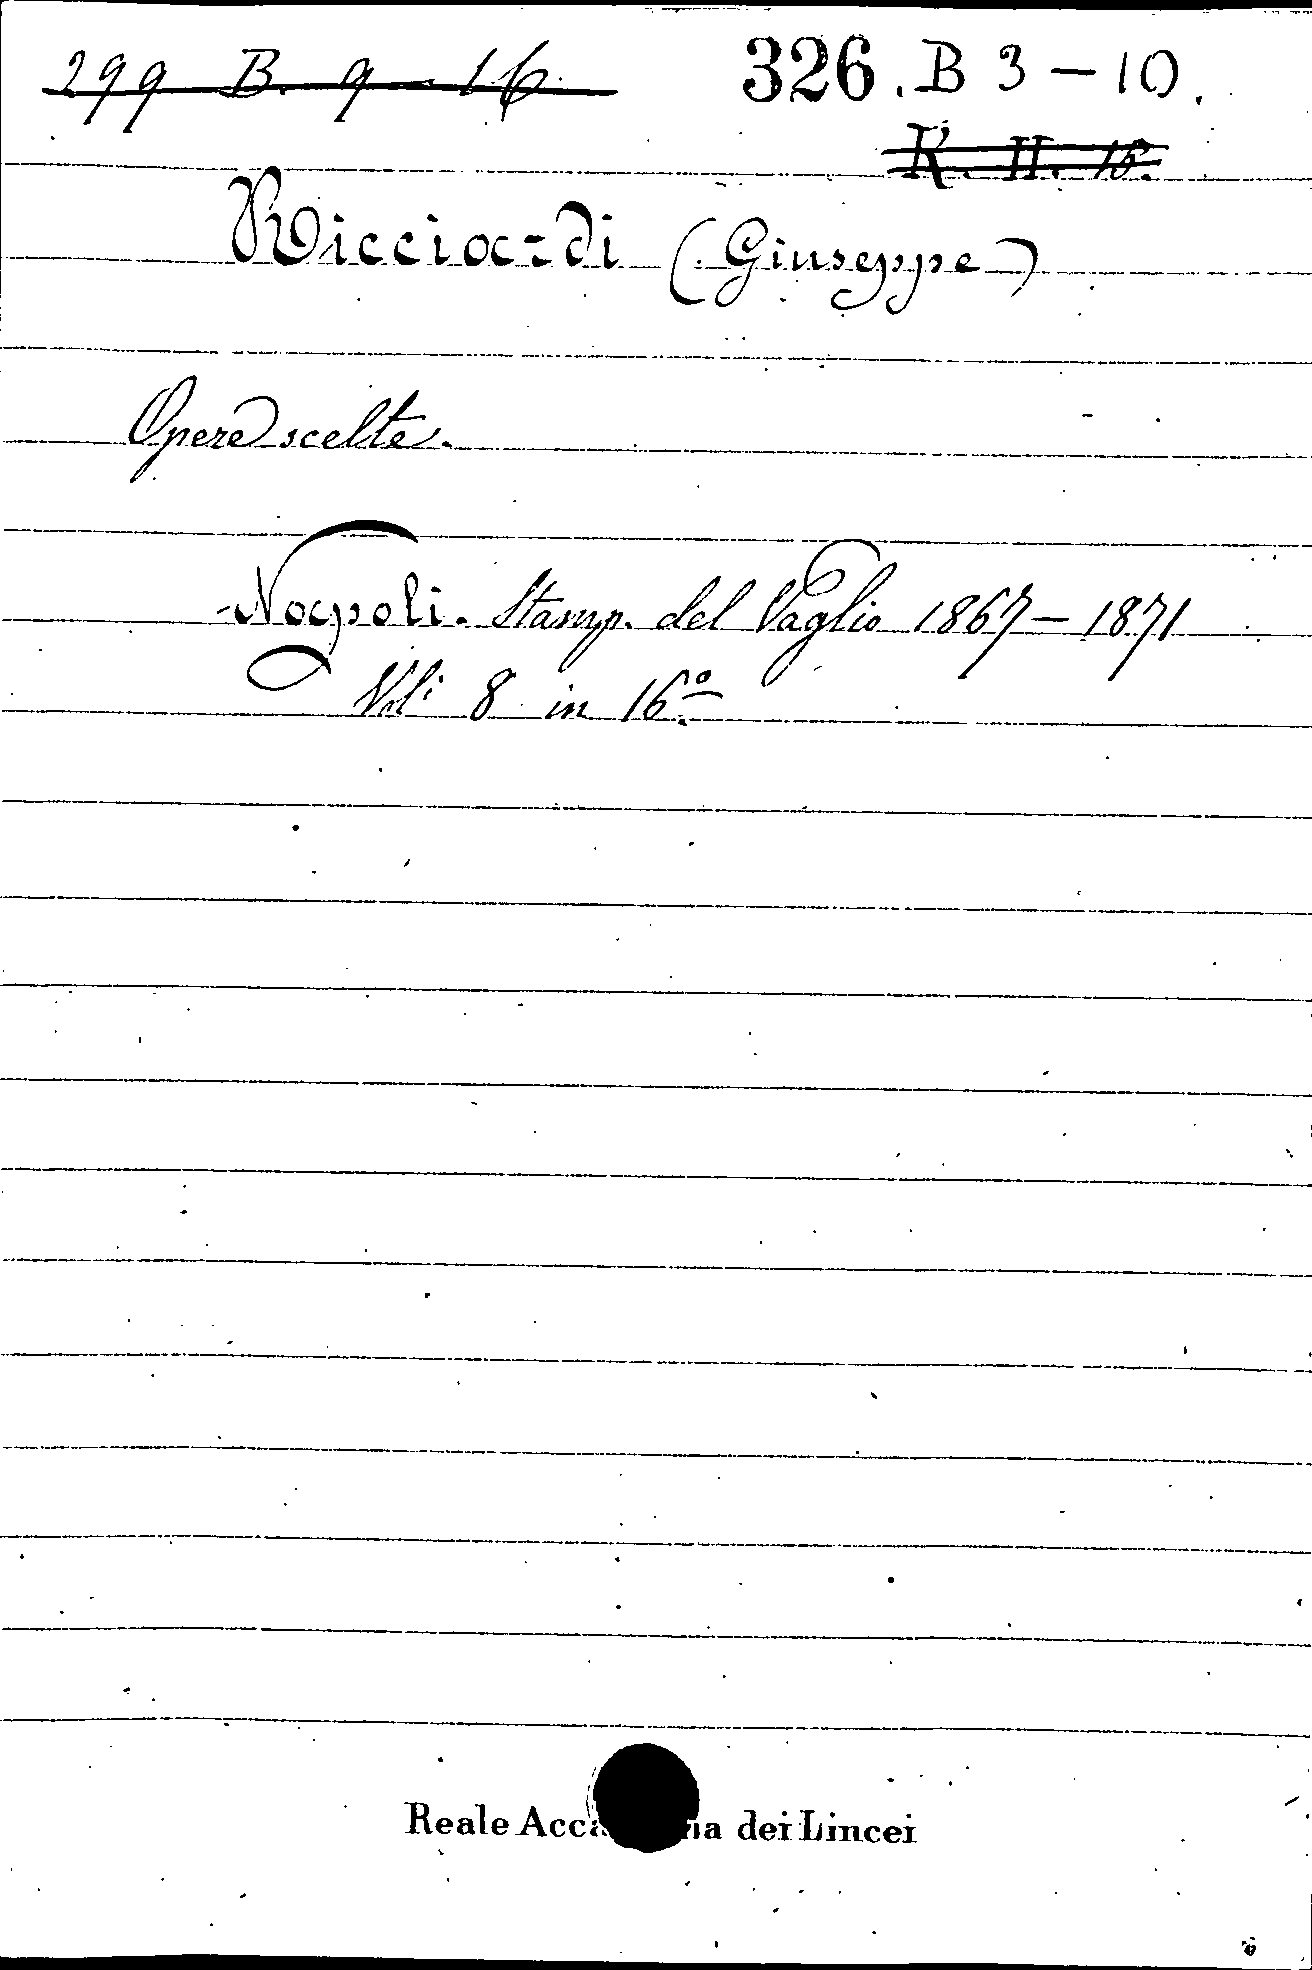 299 B. 9 - 16 326. B 3 - 10.
K. II. 15.
Ricciardi (Giuseppe)
Opere scelte.
Napoli. Stamp. del Vaglio 1867 - 1871
Voli 8 in 16.º
Reale Acca ia dei Lincei